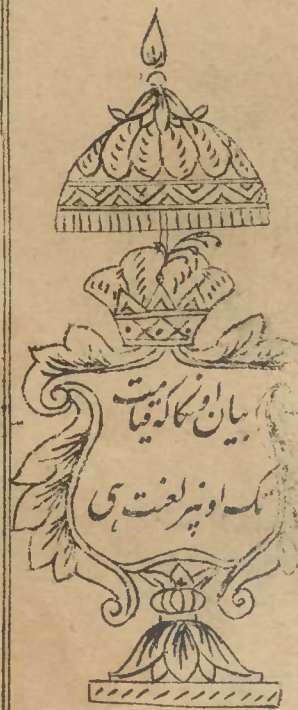 بیان اونکا کہ قیامت
تک اونپر لعنت ہی